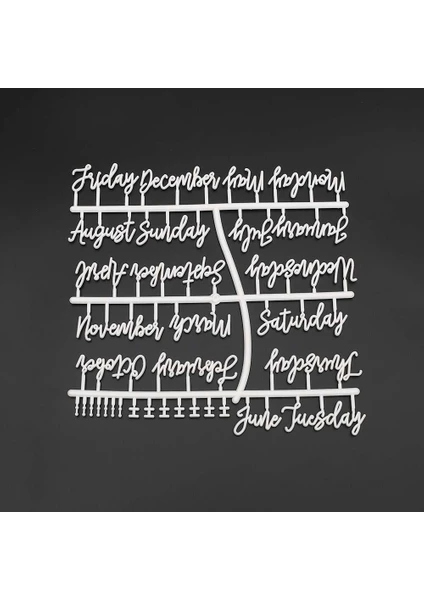 Friday December May Monday
August Sunday July January
April September Wednesday
November March Saturday
October February Thursday
June Tuesday